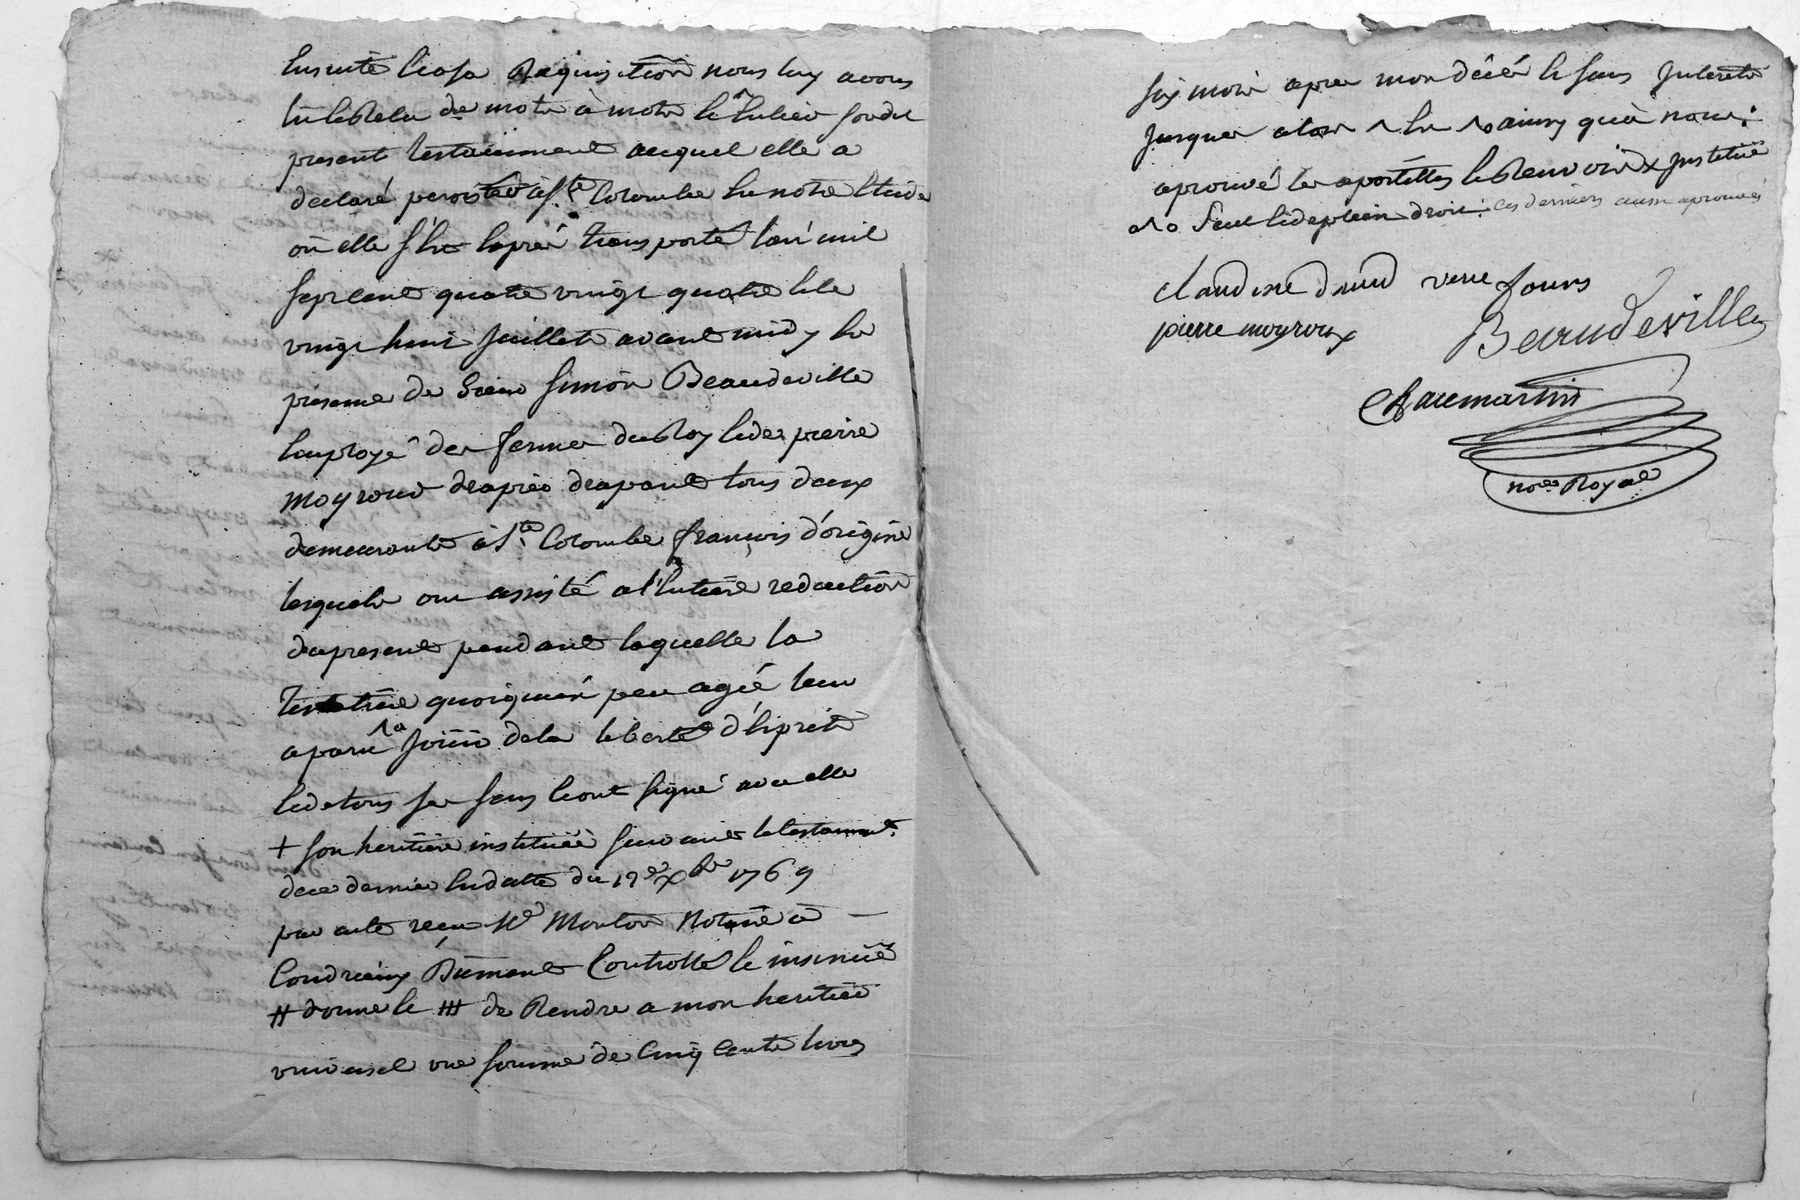 Ensuite et a sa Requisition nous luy avons
lu et Relu de mot a mot le entier son du
present testament auquel elle a
declaré persister à Ste Colombe en notre Etude
ou elle s'est exprès transporté l'an mil
sept cent quatre vingt quatre et le
vingt huit Juillet avant midy en
présence de sieur Simon Beaudeville
Employé des fermes du Roy et de pierre
moyroux drapier drapant tous deux
demeurants à Ste Colombe françois d'origine
lesquels ont assisté a l'entiere redaction
du present pendant laquelle la
testatrice quoiqu'un peu agée leur
a paru Jouir de la liberté d'esprit
et de tous ses sens et ont signé avec elle
+ son heritiere instituée suivant le testament
de ce dernier en datte du 17e Xbre 1769
par acte recu Me Mouton Notaire à
Condrieux Dument Controllé et insinué
# donne et ## de Rendre a mon heritier
universel une somme de Cinq cents livres
six mois apres mon décés et sans Interets
Jusques alors 
aprouvé les apostilles et Renvoir x Instituée
seul et de plein droit. ces derniers aussi aprouvés
claudine druid veuve Jours
pierre moyroux
Beaudeville
Chavemartin
nore Royal